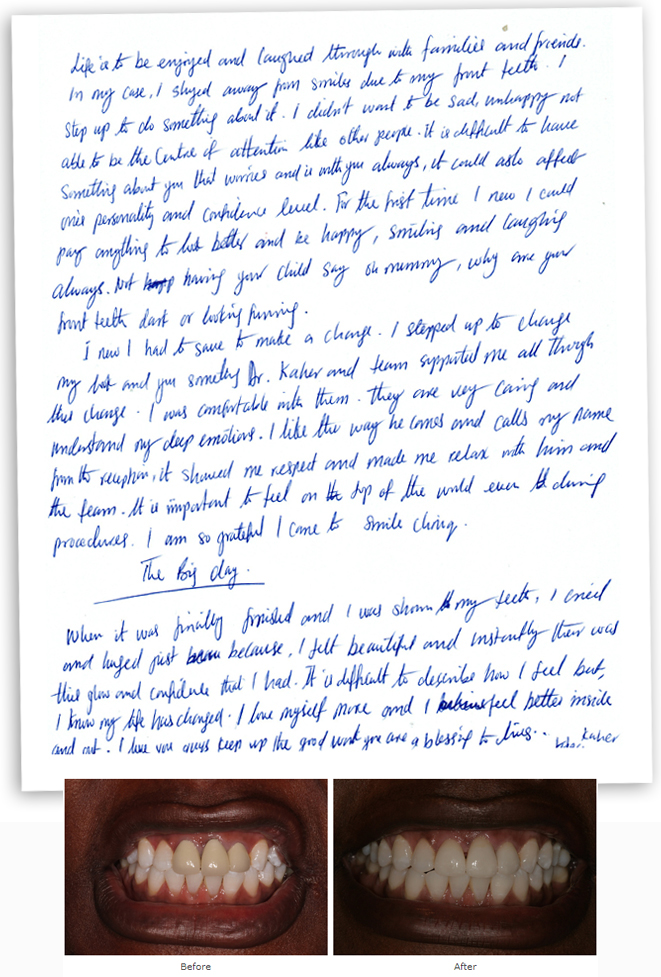 Life is to be enjoyed and laughed through with families and friends.
In my case, I shyed away from smiles due to my front teeth. I
step up to do something about it. I didn't want to be sad, unhappy not
able to be the Centre of attention like other people. it is difficult to have
Something about you that worries and is with you always, it could also affect
one's personality and confidence level. For the first time I new I could
pay anything to look better and be happy, smiling and laughing
always. Not having your child say oh mummy, why are your
front teeth dark or looking funning.
I new I had to save to make a change. I stepped up to change
my look and you Dr. Kaher and team supported me all through
this change. I was comfortable with them. they are very caring and
understand my deep emotions. I like the way he comes and calls my name
from the reception, it showed me respect and made me relax with him and
the team. It is important to feel on the top of the world even during
procedures. I am so grateful I came to smile clinic.
The Big day.
When it was finally finished and I was shown my teeth, I cried
and huged just because, I felt beautiful and instantly their was
this glow and confidence that I had. It is difficult to describe how I feel but,
I know my life has changed. I love myself more and I feel better inside
and out. I love you guys keep up the good work you are a blessing to lives..
Kaher
Before
After